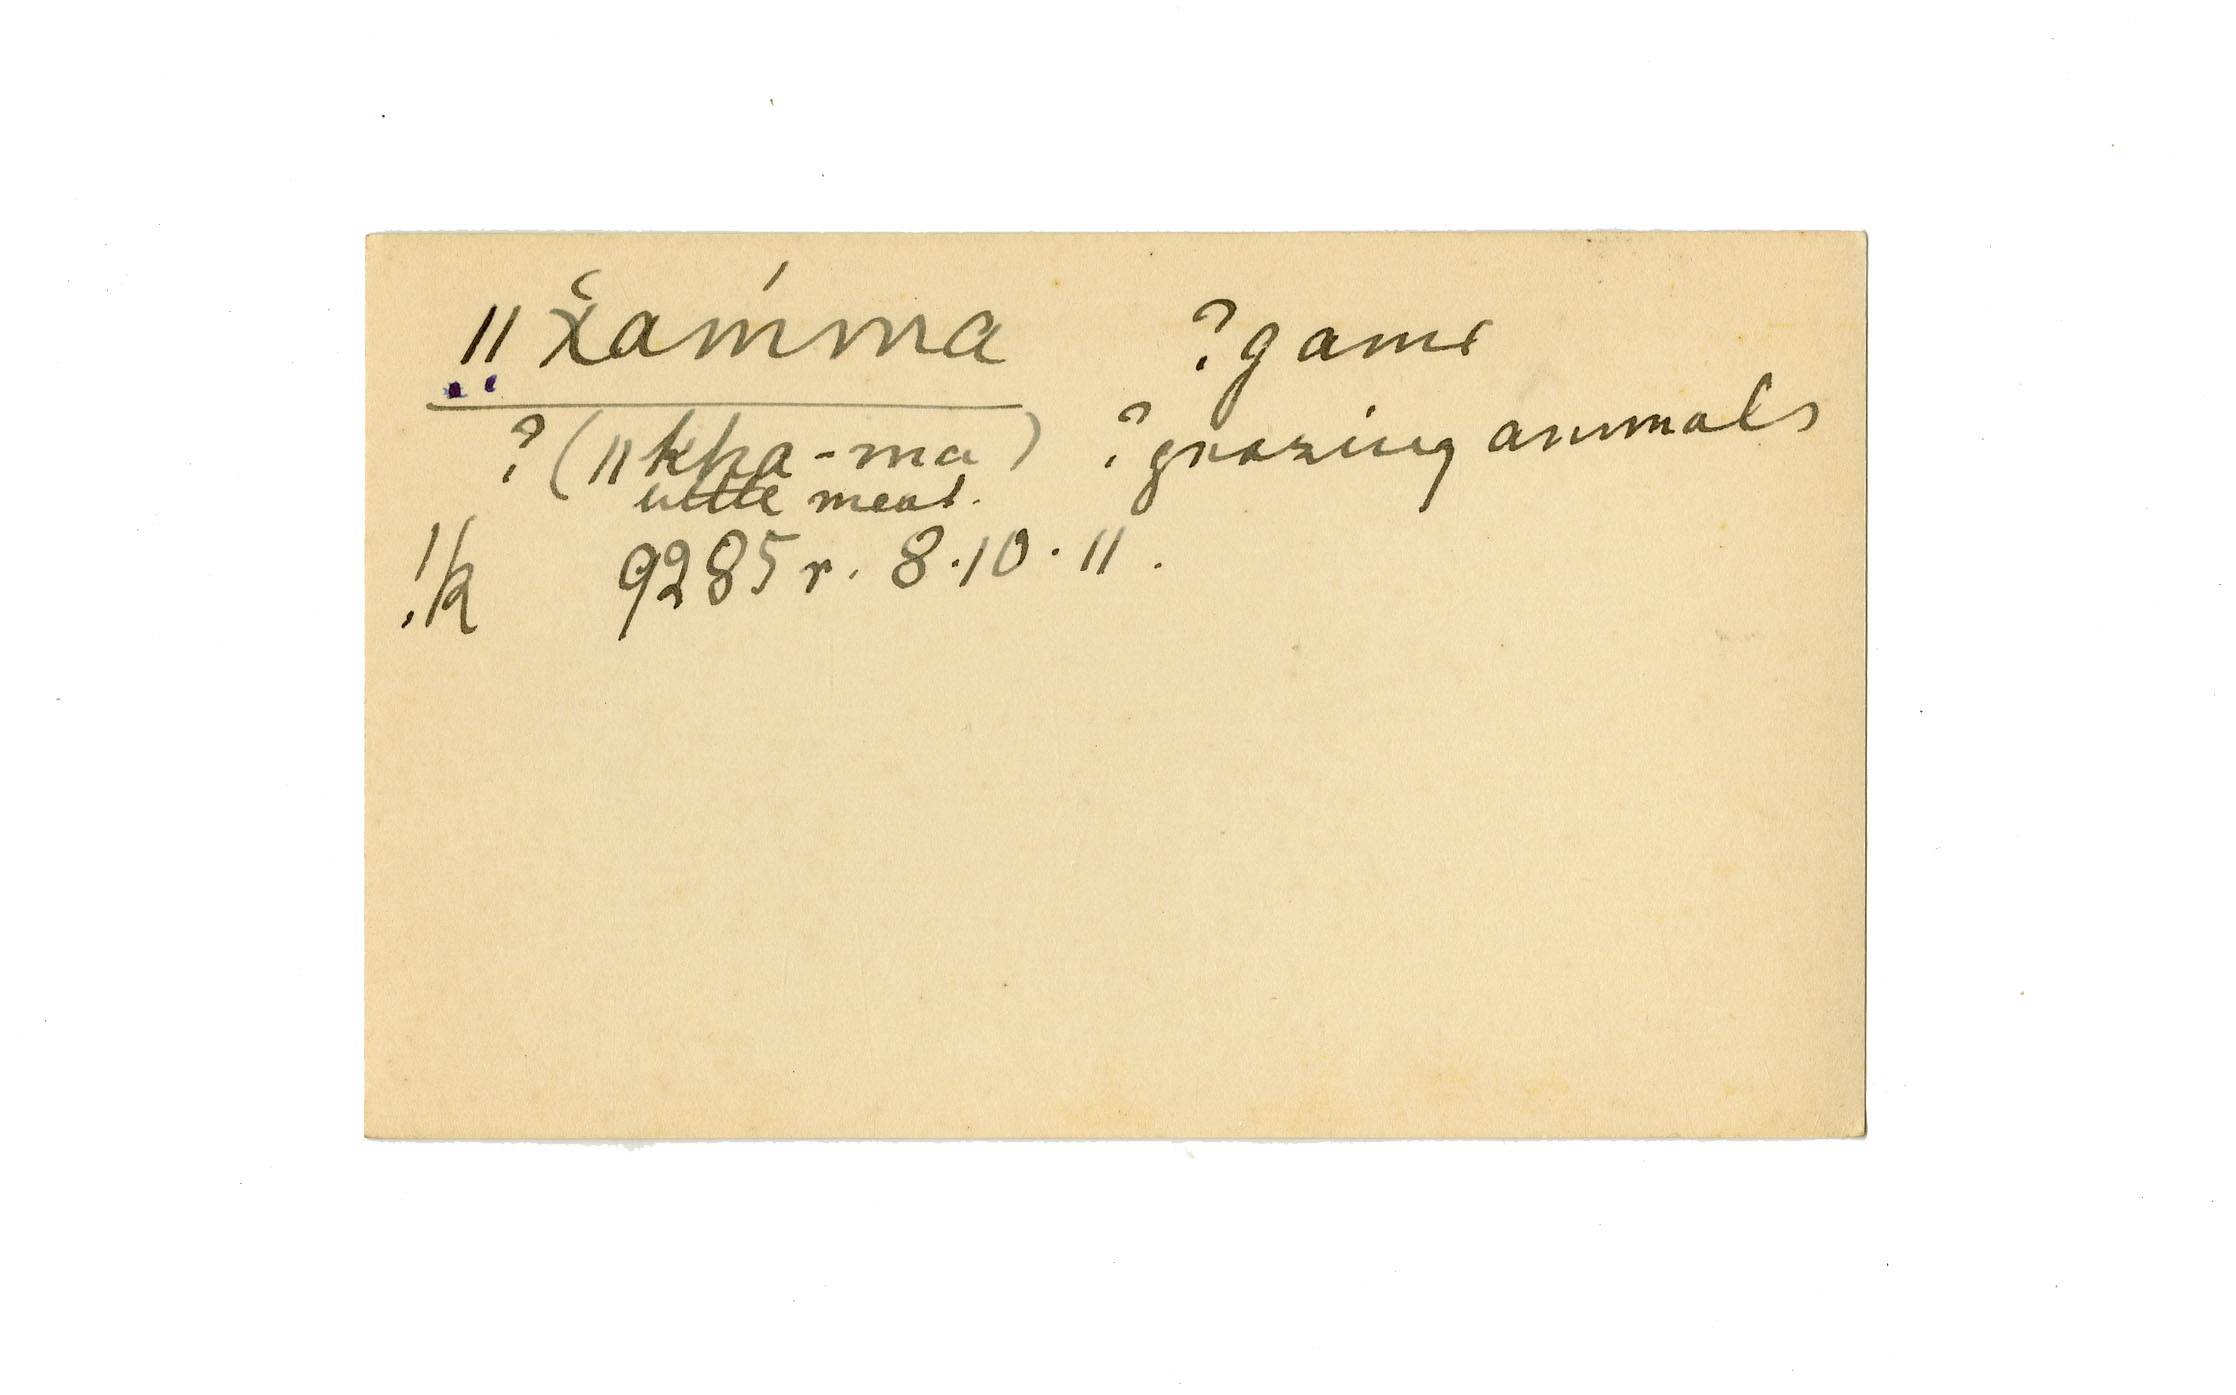 ǁx̌am̍ma ?game
?(ǁkha-ma) ?grazing animals
little meat.
!k 9285r. 8.10.11.